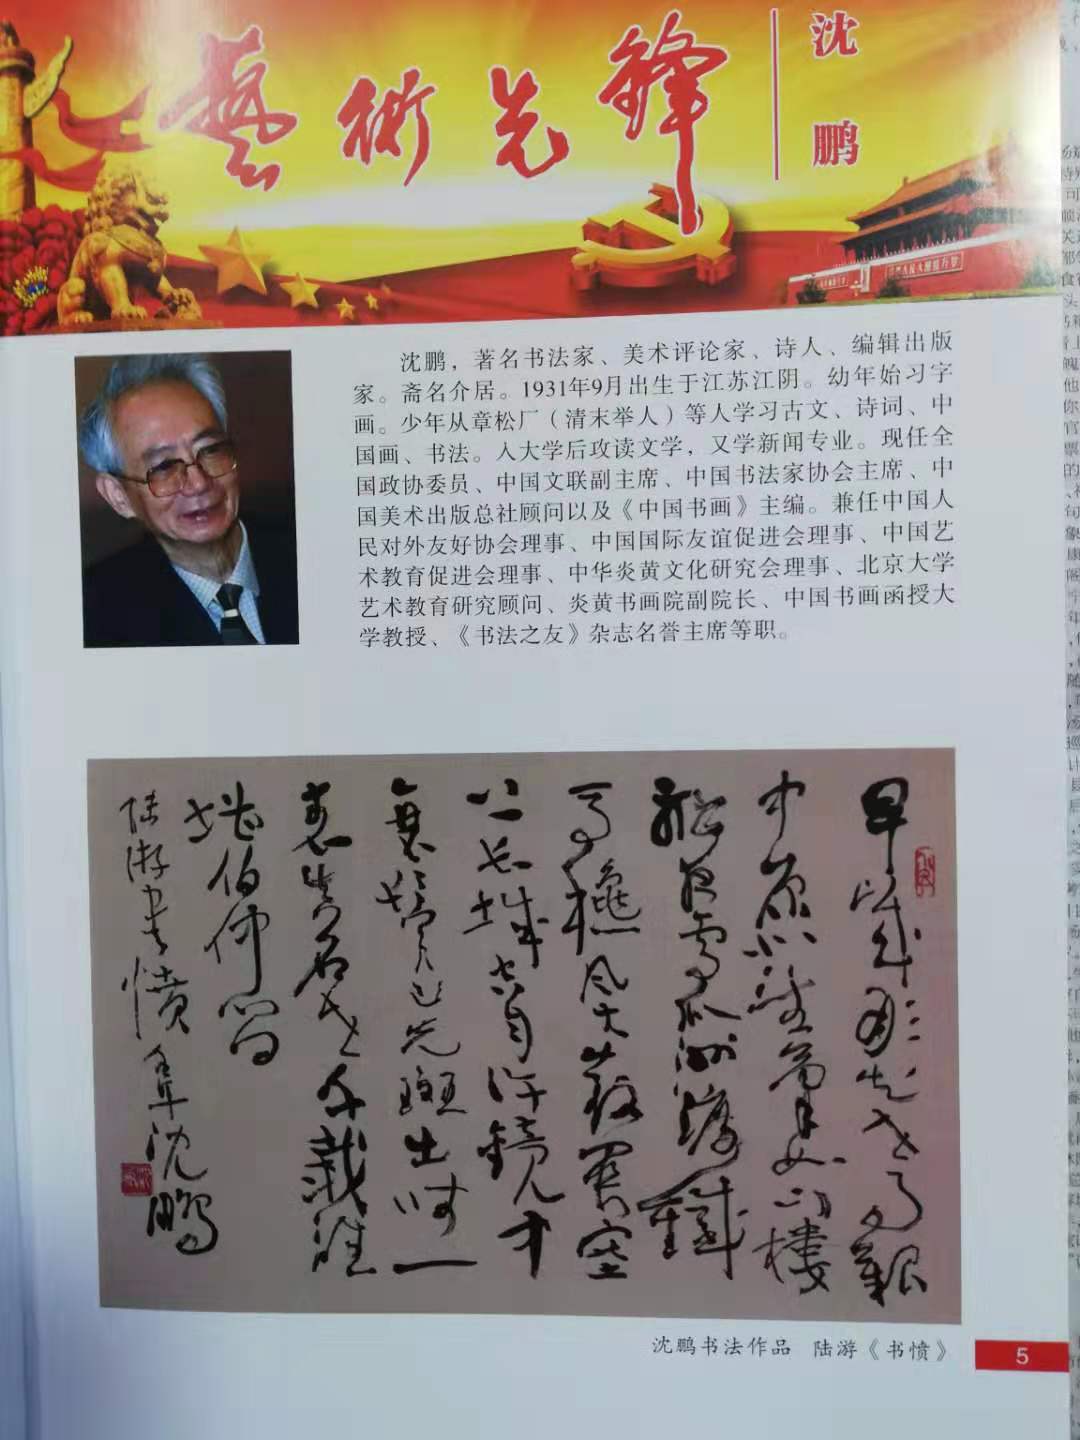 藝術先鋒
沈鹏
沈鹏，著名书法家、美术评论家、诗人、编辑出版
家。斋名介居。1931年9月出生于江苏江阴。幼年始习字
画。少年从章松厂（清末举人）等人学习古文、诗词、中
国画、书法。入大学后攻读文学，又学新闻专业。现任全
国政协委员、中国文联副主席、中国书法家协会主席、中
国美术出版总社顾问以及《中国书画》主编。兼任中国人
民对外友好协会理事、中国国际友谊促进会理事、中国艺
术教育促进会理事、中华炎黄文化研究会理事、北京大学
艺术教育研究顾问、炎黄书画院副院长、中国书画函授大
学教授、《书法之友》杂志名誉主席等职。
早歲那知世事艱
中原北望氣如山樓
船夜雪瓜洲渡鐵
馬秋風大散關塞
上長城空自許鏡中
衰鬢已先斑出師一
表真名世千載誰
堪伯仲間
陸游書憤 沈鵬
沈鹏书法作品 陆游《书愤》
5